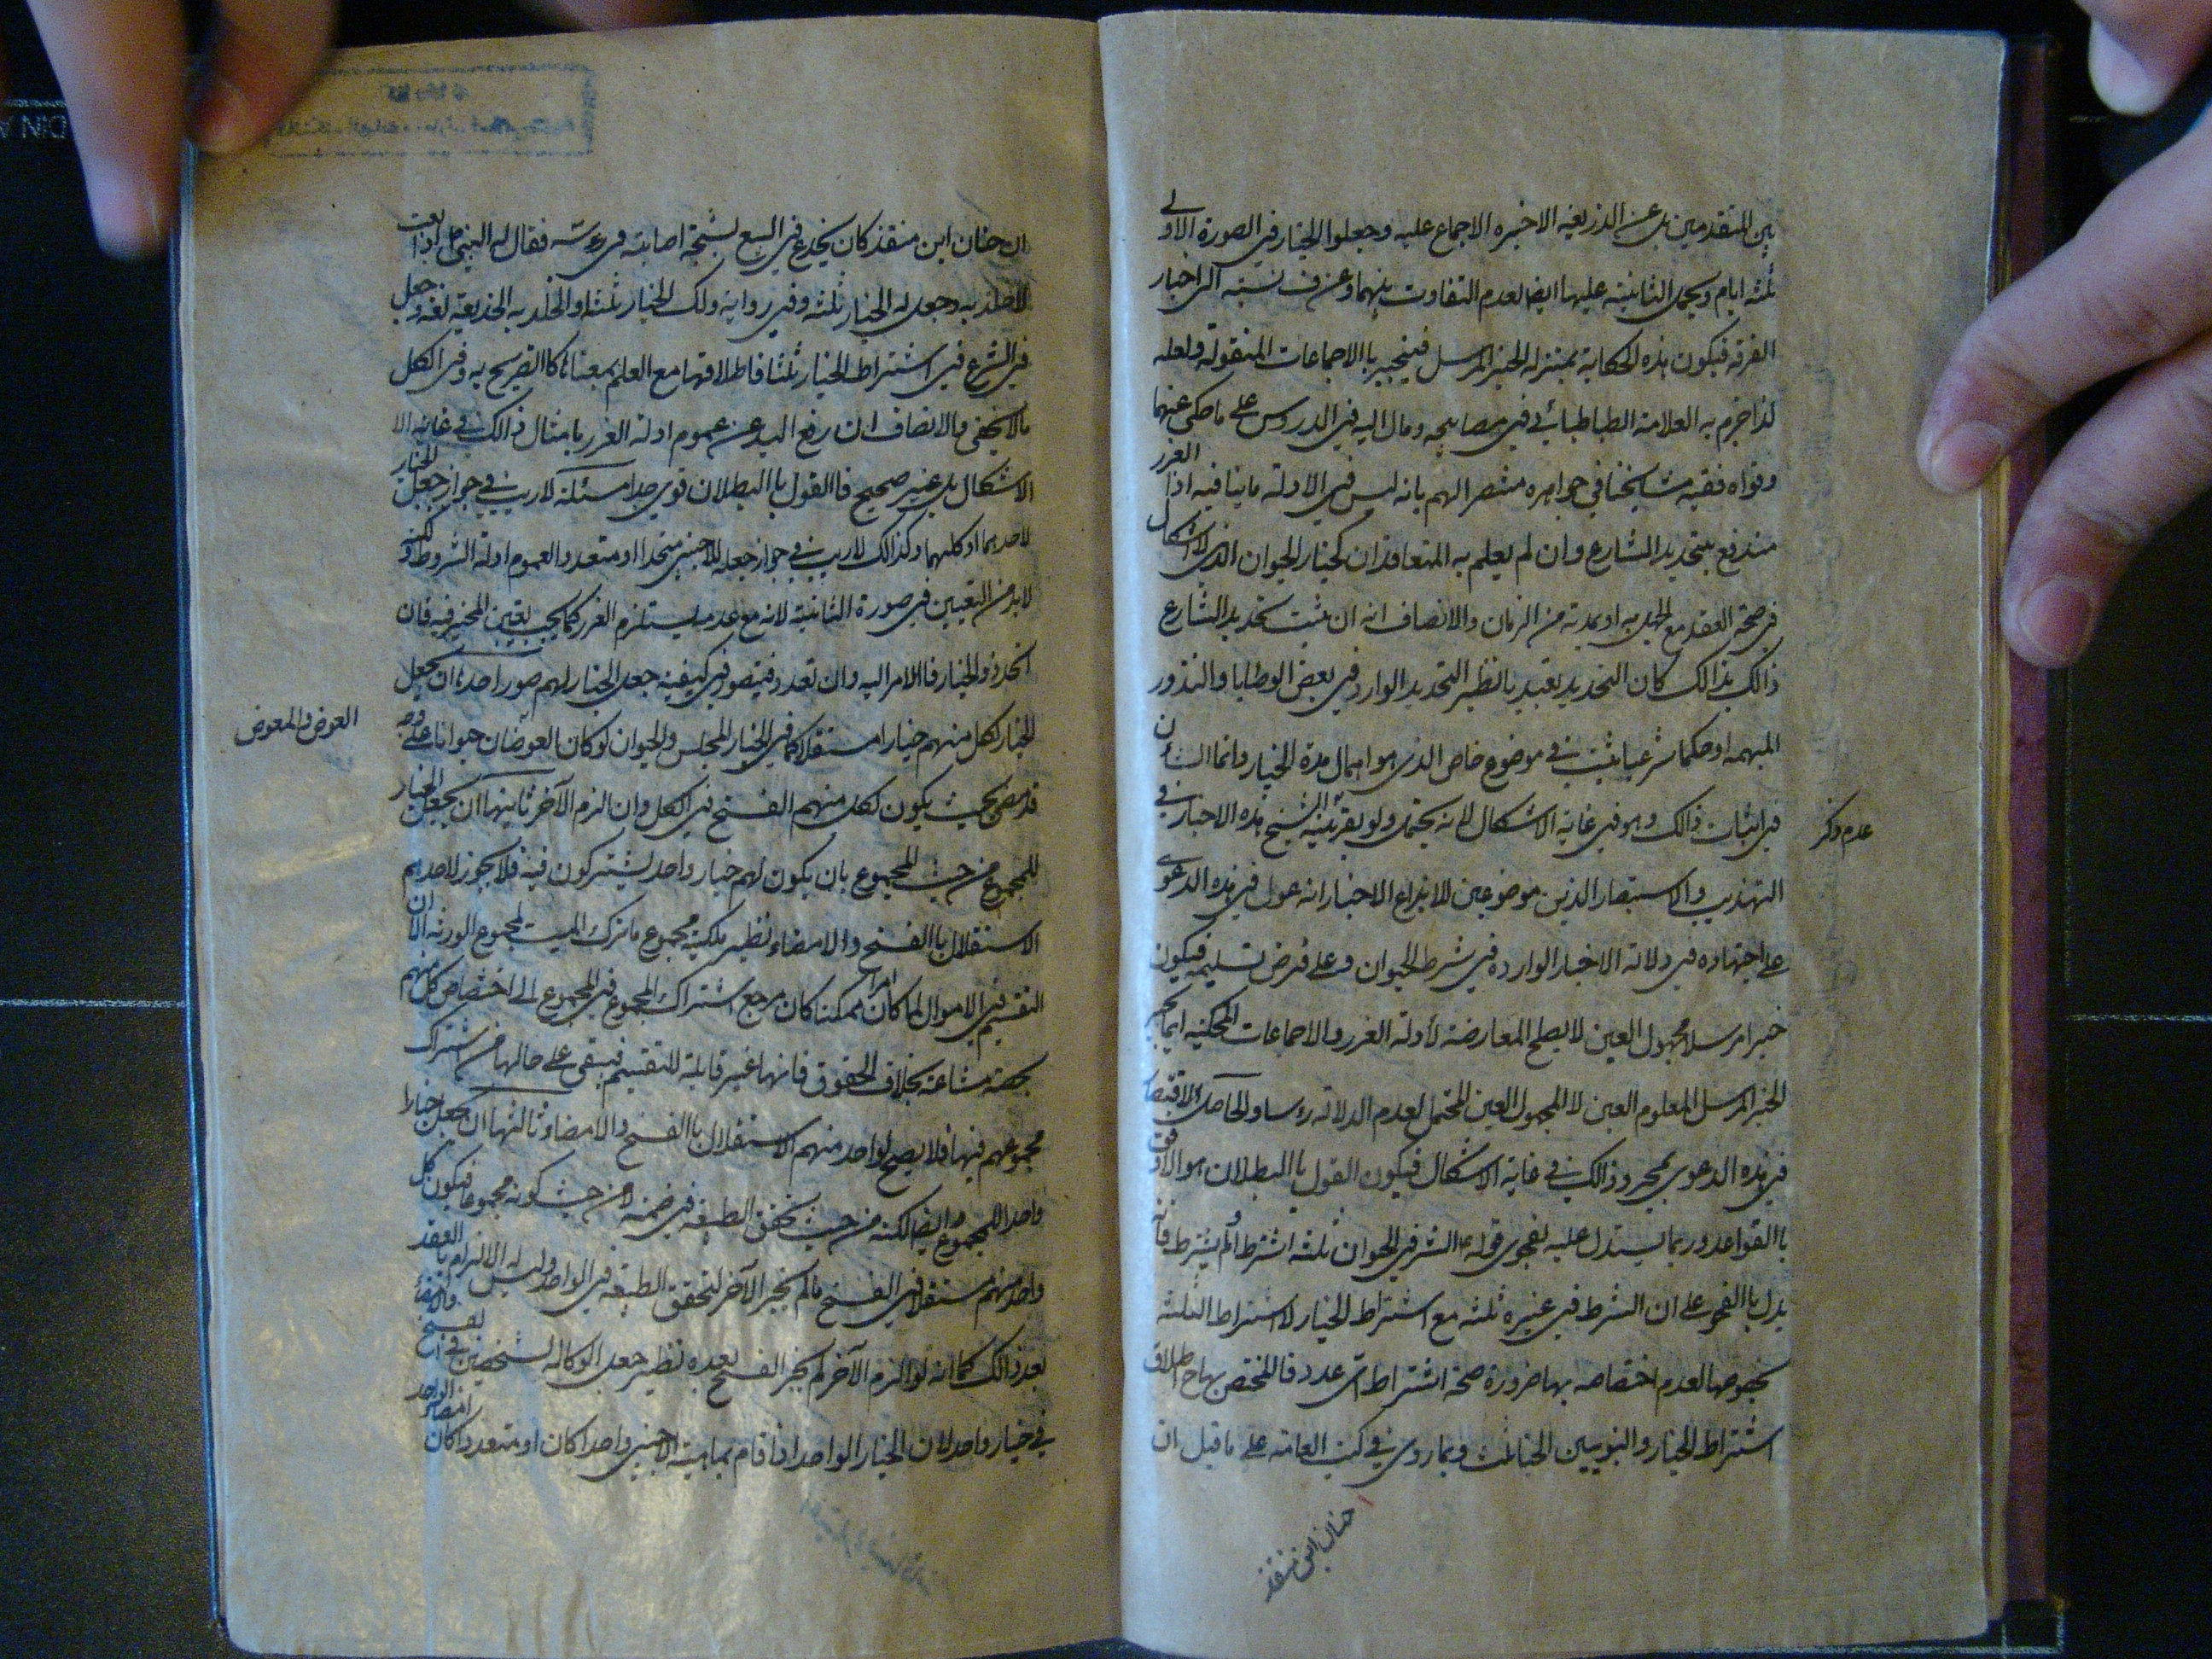 بين المتقدمين بل عن الذريعه الاخيره الاجماع عليه وجعلوا الخيار في الصورة الاولى
ثلثه ايام ويحمل الثانية عليها ايضا لعدم التفاوت بينهما وعن ف نسبته الى اخبار
الفرقه فيكون هذه الحكاية بمنزله الخبر المرسل فينجبر باالاجماعات المنقولة ولعله
لذا جزم به العلامة الطباطبائي في مصابيحه ومال اليه في الدروس على ما حكى عنهما
وقواه فقيه مشايخنا في جواهره منتصرا لهم بانه ليس في الادلة ما ينافيه اذا الغرر
مندفع بتحديد الشارع وان لم يعلم به المتعاقدان كخيار الحيوان الذى لا اشكال
في صحة العقد مع الجهل به او بمدته من الزمان والانصاف انه ان ثبت تحديد الشارع
ذالك بذالك كان التحديد تعبديا نظير التحديد الوارد في بعض الوصايا والنذور
المبهمه او حكما شرعيا ثبت في موضوع خاص الذى هو اهمال مدة الخيار وانما الشأن
في اثبات ذالك وهو في غاية الاشكال لانه يحتمل ولو بقرينة الشيخ هذه الاخبار في
عدم ذكر
التهذيب والاستبصار الذين موضوعين لايداع الاخبار انه عول في هذه الدعوى
على اجتهاده في دلالة الاخبار الوارده في شرط الحيوان وعلى فرض تسليمه فيكون
خبرا مرسلا مجهول العين لا يصلح المعارضة لأدلة الغرر والاجماعات المحكيه انما يجبر
الخبر المرسل المعلوم العين لا المجهول العين المحتمل لعدم الدلالة رؤسا والحاصل الاقتصار
في هذه الدعوى بمجرد ذالك في غاية الاشكال فيكون القول باالبطلان هو الاوفق
باالقواعد وربما يستدل عليه بفحوى قوله ع الشرط في الحيوان ثلثه اشترط أو لم يشترط فانه
يدل باالفحوى على ان الشرط في غيره ثلثه مع اشتراط الخيار لا اشتراط الثلثه
بخصوصها لعدم اختصاصه بها ضرورة صحة اشتراط اى عدد فا المختص بها ح اطلاق
اشتراط الخيار والنبويين وبما روى في كتب العامة على ما قيل ان
حنان ابن منقذ
ان حنان ابن منقذ كان يخدع في البيع لشجة اصابته في رءسه فقال له النبي ص اذا بعت
لا خلابه وجعل له الخيار ثلثه وفي رواية ولك الخيار ثلثا والخلابه الخديعة لغه وجعل
في الشرع في اشتراط الخيار ثلثا فاطلاقها مع العلم بمعناها كاالتصريح به وفي الكل
مالا يخفى فالانصاف ان رفع اليد عن عموم ادلة الغرر بامثال ذالك في غاية الا
الاشكال بل غير صحيح فاالقول باالبطلان قوى جدا مسئلة لا ريب في جواز جعل الخيار
لاحدهما او كليهما وكذالك لا ريب في جواز جعله للاجنبي متحدا او متعددا لعموم ادلة الشروط ولكن
لابد من التعيين في صورة الثانية لانه مع عدمه يستلزم الغرر كما يجب تعيين المخير فيه فان
اتحد ذو الخيار فاالامر اليه وان تعدد فيتصور في كيفية جعل الخيار لهم صور احدها ان يجعل
الخيار لكل منهم خيارا مستقلا كما في الخيار المجلس والحيوان لو كان العوضان حيوانا على وجه
العوض والمعوض
قد مضى بحيث يكون لكل منهم الفسخ في الكل وان الزم الآخر ثانيها ان يجعل الخيار
للمجموع من حيث المجموع بان يكون لهم خيار واحد يشتركون فيه فلا يجوز لاحدهم
الاستقلال باالفسخ والامضاء نظير ملكية مجموع ما ترك الميت لمجموع الورثه الا ان
التقسيم في الاموال لما كان امرا ممكنا كان مرجع اشتراك المجموع في المجموع الى اختصاص كل منهم
بحصة مشاعة بخلاف الحقوق فانها غير قابلة للتقسيم فيبقى على حالها من اشتراك
مجموعهم فيها فلا يصح لواحد منهم الاستقلال باالفسخ والامضاء وثالثها ان يجعل خيارا
واحدا للمجموع ايضا لكنه من حيث تحقق الطبيعه في ضمنه لا من حيث كونه مجموعا فيكون كل
واحد منهم مستقلا في الفسخ مالم يجيز الآخر لتحقق الطبيعه في الواحد وليس له الالزام باالعقد
بعد ذالك كما انه لو الزم الآخر لم يجز الفسخ بعده نظير جعل الوكاله لشخصين في
في خيار واحد لان الخيار الواحد اذا قام بماهية الاجنبي واحدا كان او متعددا كان